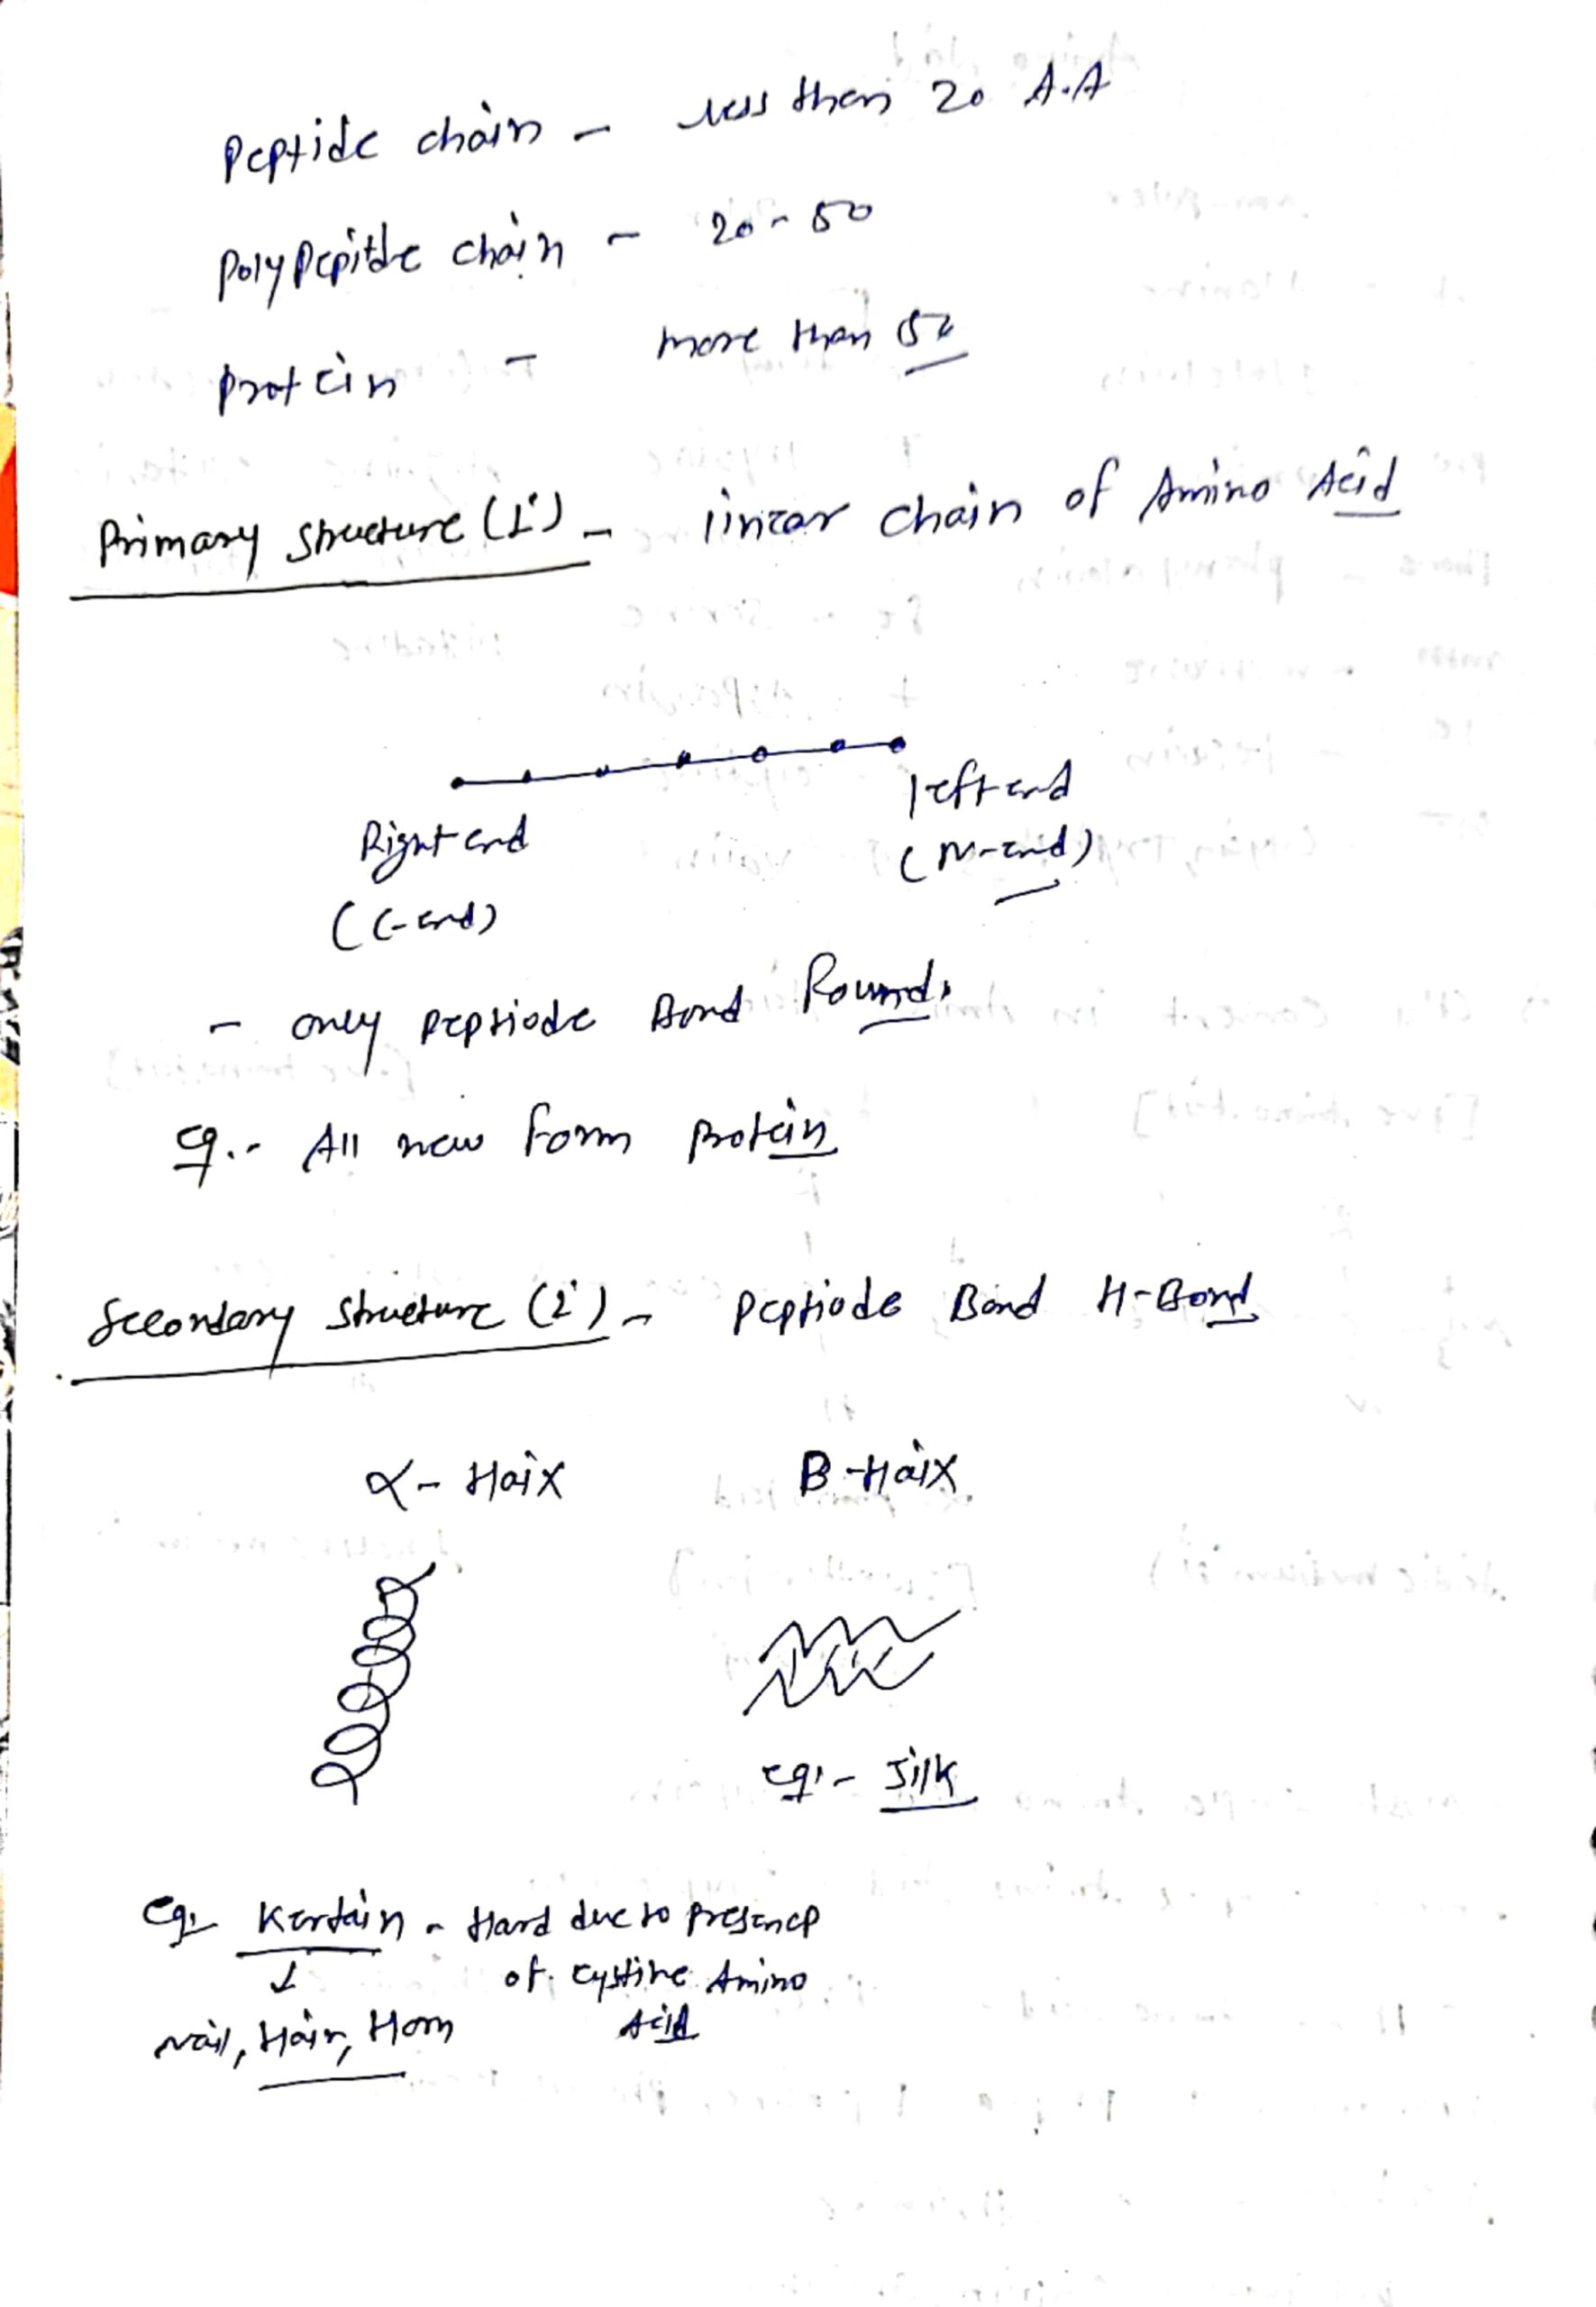 Peptide chain - less then 20 A.A
Polypepitde chain - 20-50
Protein - more than 50
Primary structure (1°) - linear chain of Amino Acid
Right end left end
(C-end) (N-end)
- only peptiode Bond Found.
eg.- All new form protein
Secondary structure (2°) - Peptiode Bond H-Bond
α- Haix B-Haix
eg:- Silk
eg:- Kertain - Hard due to presence
↓ of cystine Amino
Nail, Hair, Horn Acid